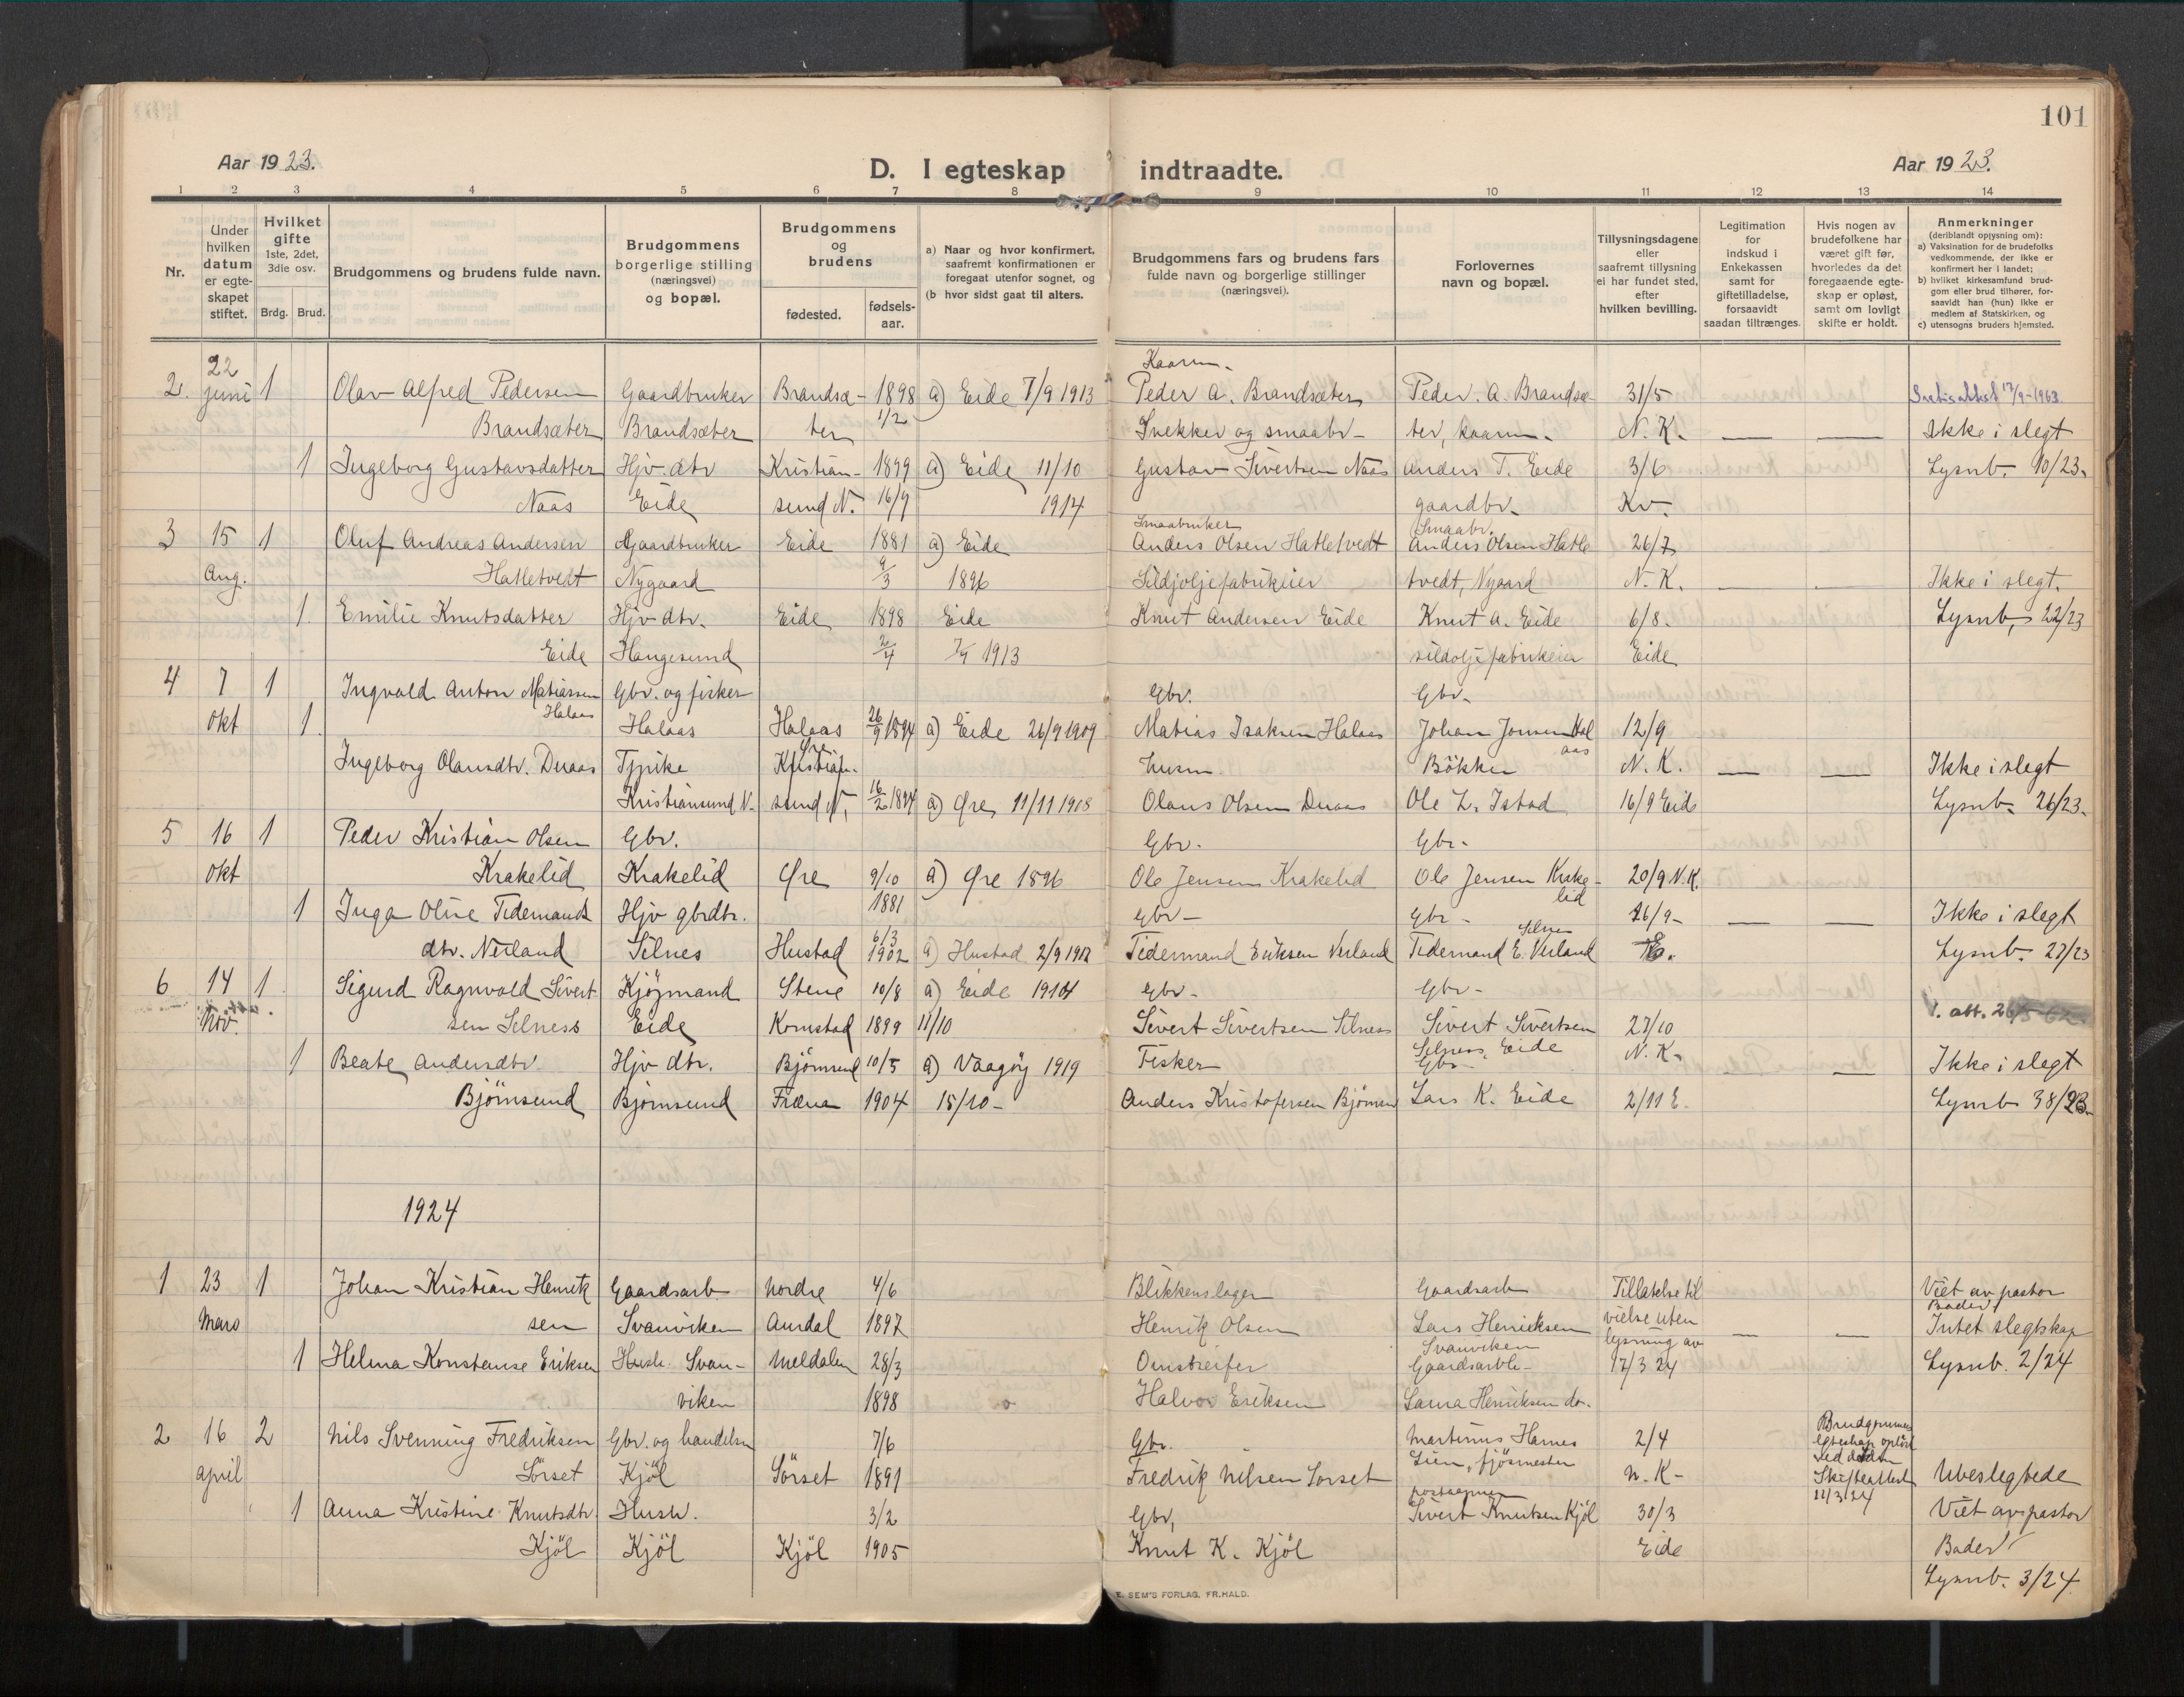 101
Aar 1923.
D. I egteskap indtraadte.
Aar 1923.
1 2 3 4 5 6 7 8 9 10 11 12 13 14
Nr.
Under hvilken datum er egteskapet stiftet.
Hvilket gifte 1ste, 2det, 3die osv.
Brdg. Brud.
Brudgommens og brudens fulde navn.
Brudgommens borgerlige stilling (næringsvei) og bopæl.
Brudgommens og brudens
fødested.
fødsels-aar.
a) Naar og hvor konfirmert, saafremt konfirmationen er foregaat utenfor sognet, og
(b hvor sidst gaat til alters.
Brudgommens fars og brudens fars fulde navn og borgerlige stillinger (næringsvei).
Forlovernes navn og bopæl.
Tillysningsdagene eller saafremt tillysning ei har fundet sted, efter hvilken bevilling.
Legitimation for indskud i Enkekassen samt for giftetilladelse, forsaavidt saadan tiltrænges.
Hvis nogen av brudefolkene har været gift før, hvorledes da det foregaaende egteskap er opløst, samt om lovligt skifte er holdt.
Anmerkninger (deriblandt opjysning om):
a) Vaksination for de brudefolks vedkommende, der ikke er konfirmert her i landet;
b) hvilket kirkesamfund brudgom eller brud tilhører, forsaavidt han (hun) ikke er medlem af Statskirken, og
c) utensogns bruders hjemsted.
22 Kaarm.
2. juni 1 Olav Alfred Pedersen Gaardbruker Brandsæ- 1898 a) Eide 7/9 1913 Peder A. Brandsæter Peder. A. Brandsæ- 31/5 12/9-1963
Brandsæter Brandsæter ter 1/2 Snekker og smaabr- ter, kaarm. N. K. — — Ikke i slegt
1 Ingeborg Gustavsdatter Hjv. dtr Kristian- 1899 a) Eide 11/10 Gustav Sivertsen Naas Anders T. Eide 3/6 Lysnb. 10/23.
Naas Eide sund N. 16/9 1914 gaardbr. Kv.
Smaabruker Smaabr.
3 15 1 Oluf Andreas Andersen Gaardbruker Eide 1881 a) Eide Anders Olsen Hatletvedt Anders Olsen Hatle 26/7
Aug. Hatletvedt Nygaard 9/3 1896 Sildjoljefabrikeier tvedt, Nygaard N. K. — — Ikke i slegt.
1. Emilie Knutsdatter Hjv dtr. Eide 1898 Eide Knut Andersen Eide Knut A. Eide 6/8. Lysnb, 22/23
Eide Haugesund 2/4 1913 sildoljefabrikeier Eide
4 7 1 Ingvald Anton Matiassen Gbr. og fisker Gbr. Gbr.
okt 1. Halaas Halaas Halaas 26/9 1894 a) Eide 26/9 1909 Matias Isaksen Halaas Johan Jonsen Hal 12/9
aas
Ingeborg Olausdtr. Duaas Tjnike Øre Kristian- husm. Bökker N. K. — — Ikke i slegt
Kristiansund N. sund N, 16/2 1894 a) Øre 11/11 1908 Olaus Olsen Duaas Ole L. Istad 16/9 Eide Lysnb. 26/23.
5 16 1 Peder Kristian Olsen Gbr. Gbr. Gbr.
okt Krakelid Krakelid Øre 9/10 a) Øre 1896 Ole Jensen Krakelid Ole Jensen Krake- 20/9 N.K.
lid
1 Inga Oline Tidemands Hjv gbrdtr. 1881 Gbr — Gbr - 26/9- — — Ikke i slegt
Silnes
dtr. Nerland Silnes Hustad 6/3 1902 a) Hustad 2/9 1917 Tidemand Eriksen Nerland Tidemand E. Nerland E. Lysnb. 27/23
6 14 1 Sigurd Ragnvald Sivert- Kjøzmand Stene 10/8 a) Eide 1914 Gbr- Gbr-
Nov. sen Silness Eide Kornstad 1899 11/10 Sivert Sivertsen Silness Sivert Sivertsen 27/10 V. att. 26/5-62.
Silness, Eide
1 Beate Andersdtr. Hjv dtr. Bjørnsund 10/5 a) Vaagöy 1919 Fisker Gbr N. K. — — Ikke i slegt
Björnsund Bjornsund Fræna 1904 15/10- Anders Kristofersen Björnsund Lars K. Eide 2/11 E. Lysnb 38/23.
1924
1 23 1 Johan Kristian Henrik Gaardsarb Nordre 4/6 Blikkenslager Gaardsarb Tillatelse til Viet av pastor
Bader
Mars sen Svanviken Aurdal 1897 Henrik Olsen Lars Henriksen vielse uten — — Intet slegtskap
Svanviken lysning av
1 Helma Konstanse Eriksen Hush. Svan- Meldalen 28/3 Omstreifer Gaardsarb. 17/3 24 Lysnb. 2/24
viken 1898 Halvor Eriksen Laura Henriksen do.
2 16 2 Nils Svenning Fredriksen Gbr. og handelsm 7/6 Gbr. Martinus Harnes 2/4 Brudgommens
egteskap opløst
ved döden
april Sörset Kjöl Sörset 1891 Fredrik Nilsen Sorset Lien, fjösmester N. K- Skifteattest Ubeslegtede
11/3 24
1 Anna Kristine Knutsdtr. Hush. 3/2 Gbr, Sivert Knutsen Kjöl 30/3 Viet av pastor
Kjöl Kjöl Kjöl 1905 Knut K. Kjöl Eide Bader
Lysnb. 3/24
E. SEM'S FORLAG, FR.HALD.